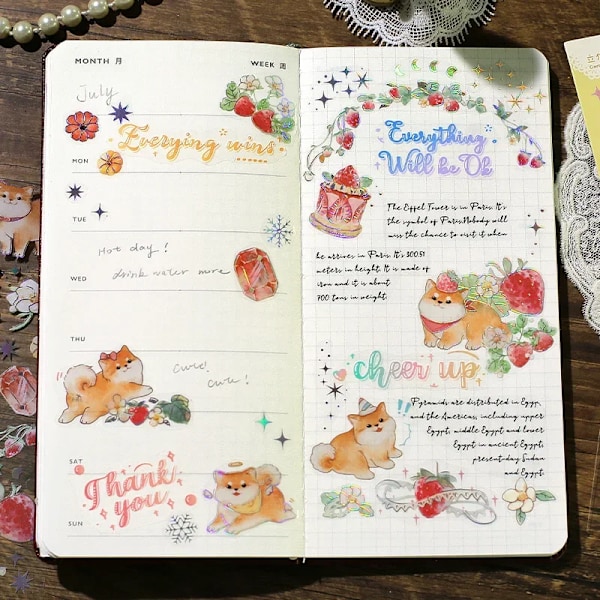 MONTH 月
WEEK 週
July
Everying wins
MON
TUE
Hot day!
WED
drink water more
THU
cute!
cute!
SAT
Thank
you
SUN
Everything
Will be Ok
The Eiffel Tower is in Paris. It's
the symbol of Paris.Nobody will
miss the chance to visit it when
he arrives in Paris. It's 300.51
meters in height. It is made of
iron and it is about
700 tons in weight.
cheer up
Pyramids are distributed in Egyp,
and the Americas, including upper
Egypt, middle Egypt and lower
Egypt in ancient Egypt;
present-day Sudan
and Egypt